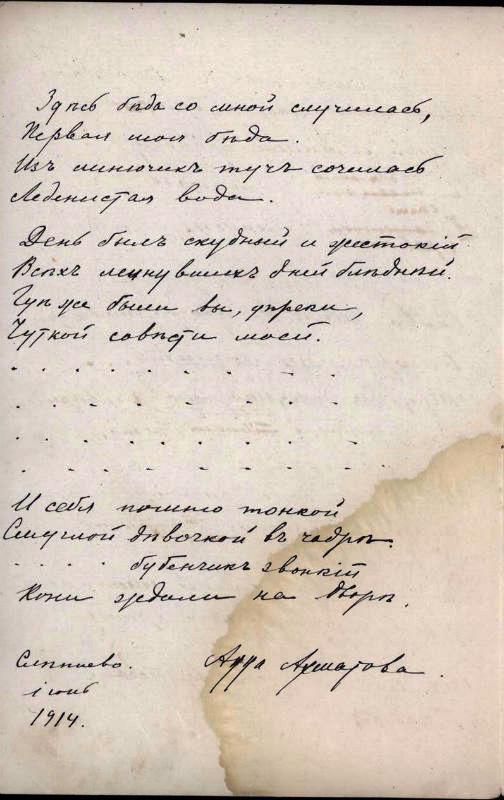 Здѣсь бѣда со мной случилась,
Первая моя бѣда.
Изъ линючихъ тучъ сочилась
Леденистая вода.
День былъ скудный и жестокій
Всѣхъ минувшихъ дней блѣднѣй.
Гдѣ же были вы, упреки,
Чуткой совѣсти моей.
. . . . . . . . .
. . . . . . . .
. . . . . . . . .
. . . . . . . . .
И себя помню тонкой
Смуглой дѣвочкой въ чадрѣ.
. . . . бубенчикъ звонкій
Кони ждали на дворѣ.
Слепнево.
1914.
Анна Ахматова.